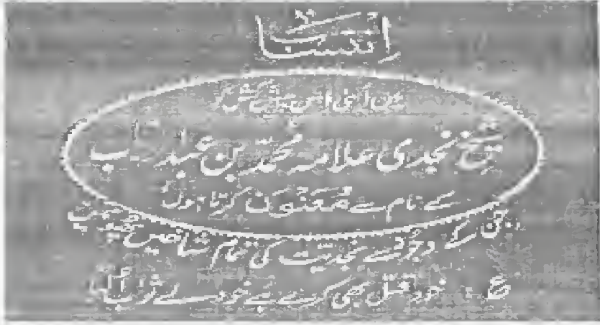 انتساب
میں اپنی اس پیش کش کو
شیخ نجدی علامہ محمد بن عبدالوہاب
کے نام سے مُعَنْوَن کرتا ہوں
جن کے وجود سے نجدیت کی تمام شاخیں پھوٹیں
خود قتل بھی کرے ہے خود لے ثواب